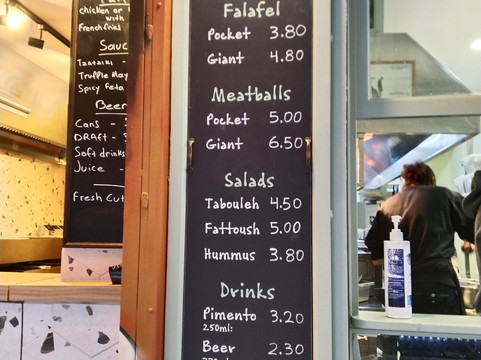 chicken or
with
French fries
Sauc
Tzatziki -
Truffle May
Spicy feta
Beer
Cans -
DRAFT -
Soft drinks
Juice -
Fresh Cut
Falafel
Pocket 3.80
Giant 4.80
Meatballs
Pocket 5.00
Giant 6.50
Salads
Tabouleh 4.50
Fattoush 5.00
Hummus 3.80
Drinks
Pimento 3.20
250ml:
Beer 2.30